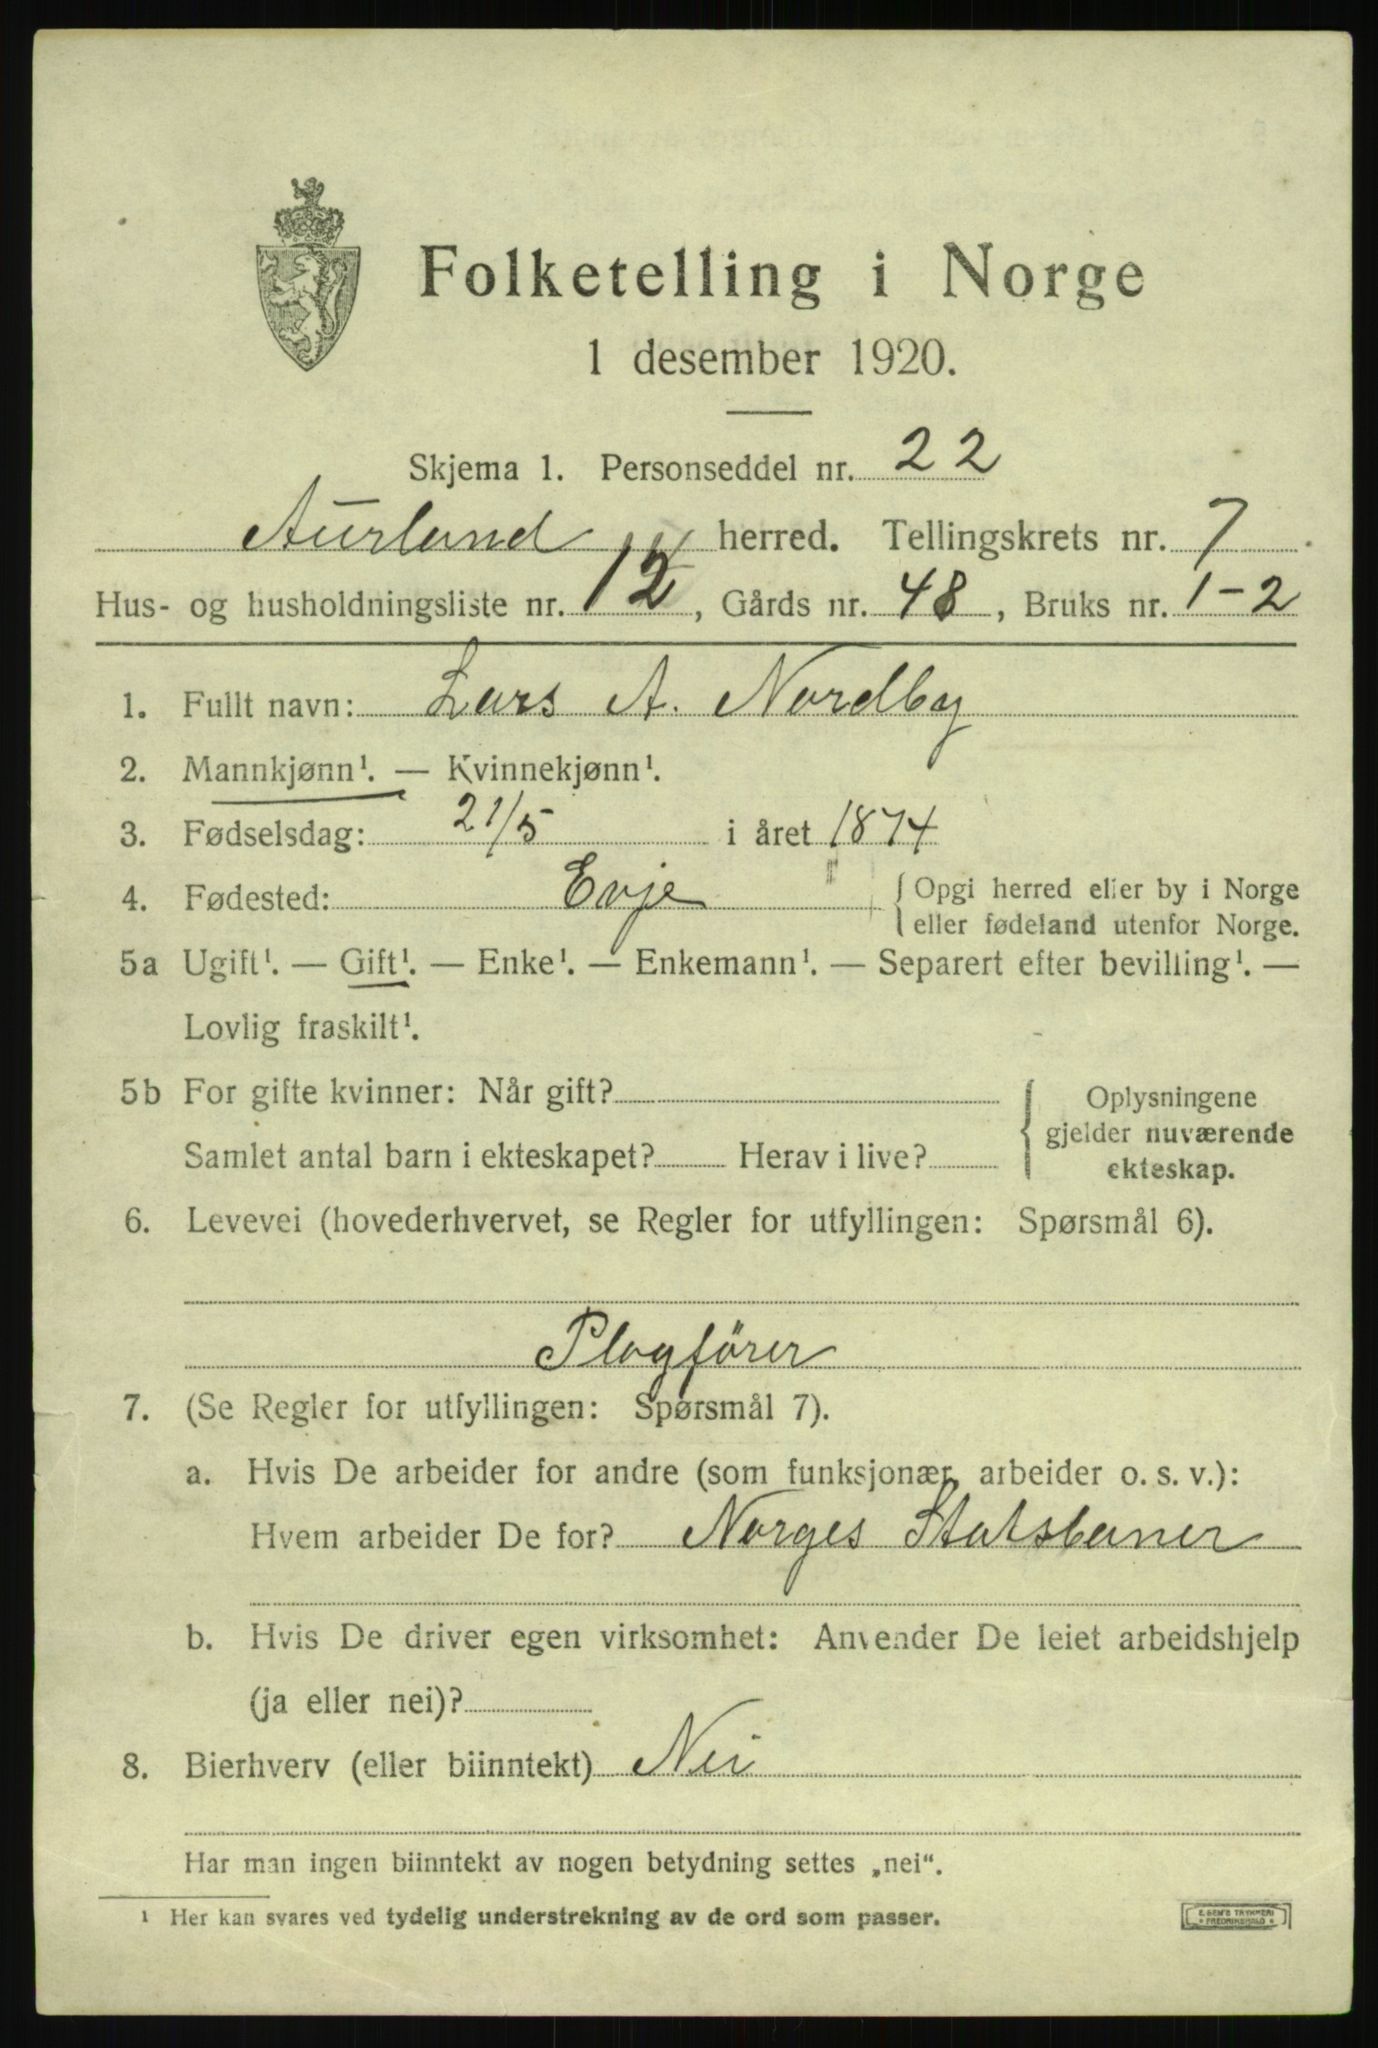 Folketelling i Norge
1 desember 1920.
Skjema 1. Personseddel nr. 22
Aurland herred. Tellingskrets nr. 7
Hus- og husholdningsliste nr. 12, Gårds nr. 48, Bruks nr. 1-2
1. Fullt navn: Lars A. Nordby
2. Mannkjønn¹. — Kvinnekjønn¹.
3. Fødselsdag: 21/5 i året 1874
4. Fødested: Evje { Opgi herred eller by i Norge
eller fødeland utenfor Norge.
5a Ugift¹. — Gift¹. — Enke¹. — Enkemann¹. — Separert efter bevilling¹. —
Lovlig fraskilt¹.
5b For gifte kvinner: Når gift? { Oplysningene
gjelder nuværende
Samlet antal barn i ekteskapet? Herav i live?
ekteskap.
6. Levevei (hovederhvervet, se Regler for utfyllingen: Spørsmål 6).
Plogfører
7. (Se Regler for utfyllingen: Spørsmål 7).
a. Hvis De arbeider for andre (som funksjonær, arbeider o. s. v.):
Hvem arbeider De for? Norges Statsbaner
b. Hvis De driver egen virksomhet: Anvender De leiet arbeidshjelp
(ja eller nei)?
8. Bierhverv (eller biinntekt) Nei
Har man ingen biinntekt av nogen betydning settes „nei“.
¹ Her kan svares ved tydelig understrekning av de ord som passer.
E. SEM'S TRYKKERI
FREDRIKSHALD